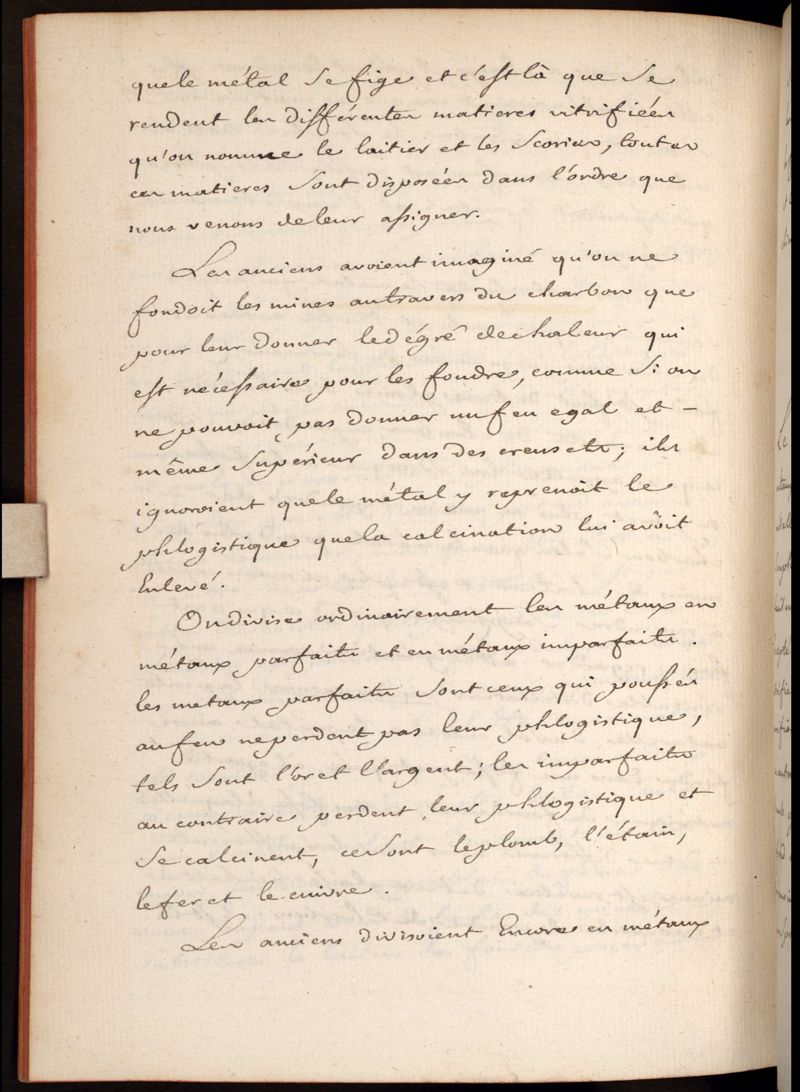 que le métal se fige et c'est là que se
rendent les différentes matieres vitrifiées
qu'on nomme le laitier et les scories, toutes
ces matieres sont disposées dans l'ordre que
nous venons de leur assigner.
Les anciens avoient imaginé qu'on ne
fondoit les mines autravers du charbon que
pour leur donner le dégré de chaleur qui
est nécessaire pour les fondre, comme si on
ne pouvoit pas donner un feu egal et -
même supérieur dans des creusets; ils
ignoroient que le métal y reprenoit le
phlogistique que la calcination lui avoit
Enlevé.
On divise ordinairement les métaux en
métaux parfaits et en métaux imparfaits.
les metaux parfaits sont ceux qui poussés
au feu ne perdent pas leur phlogistique,
tels sont l'or et l'argent; les imparfaits
au contraire perdent leur phlogistique et
se calcinent, ce sont le plomb, l'étain,
le fer et le cuivre.
Les anciens divisoient Encore en métaux